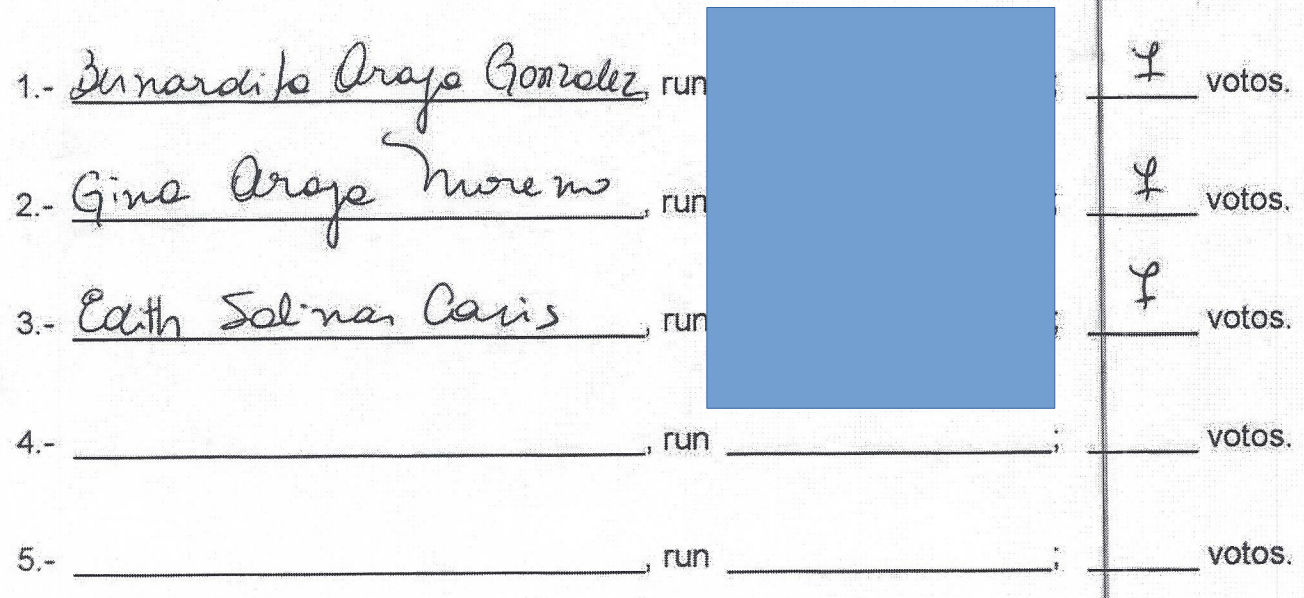 1.- Bernardita Araya Gonzalez, run ; 7 votos.
2.- Gina Araya Moreno, run ; 7 votos.
3.- Edith Salinas Caris, run ; 7 votos.
4.- , run ; votos.
5.- , run ; votos.